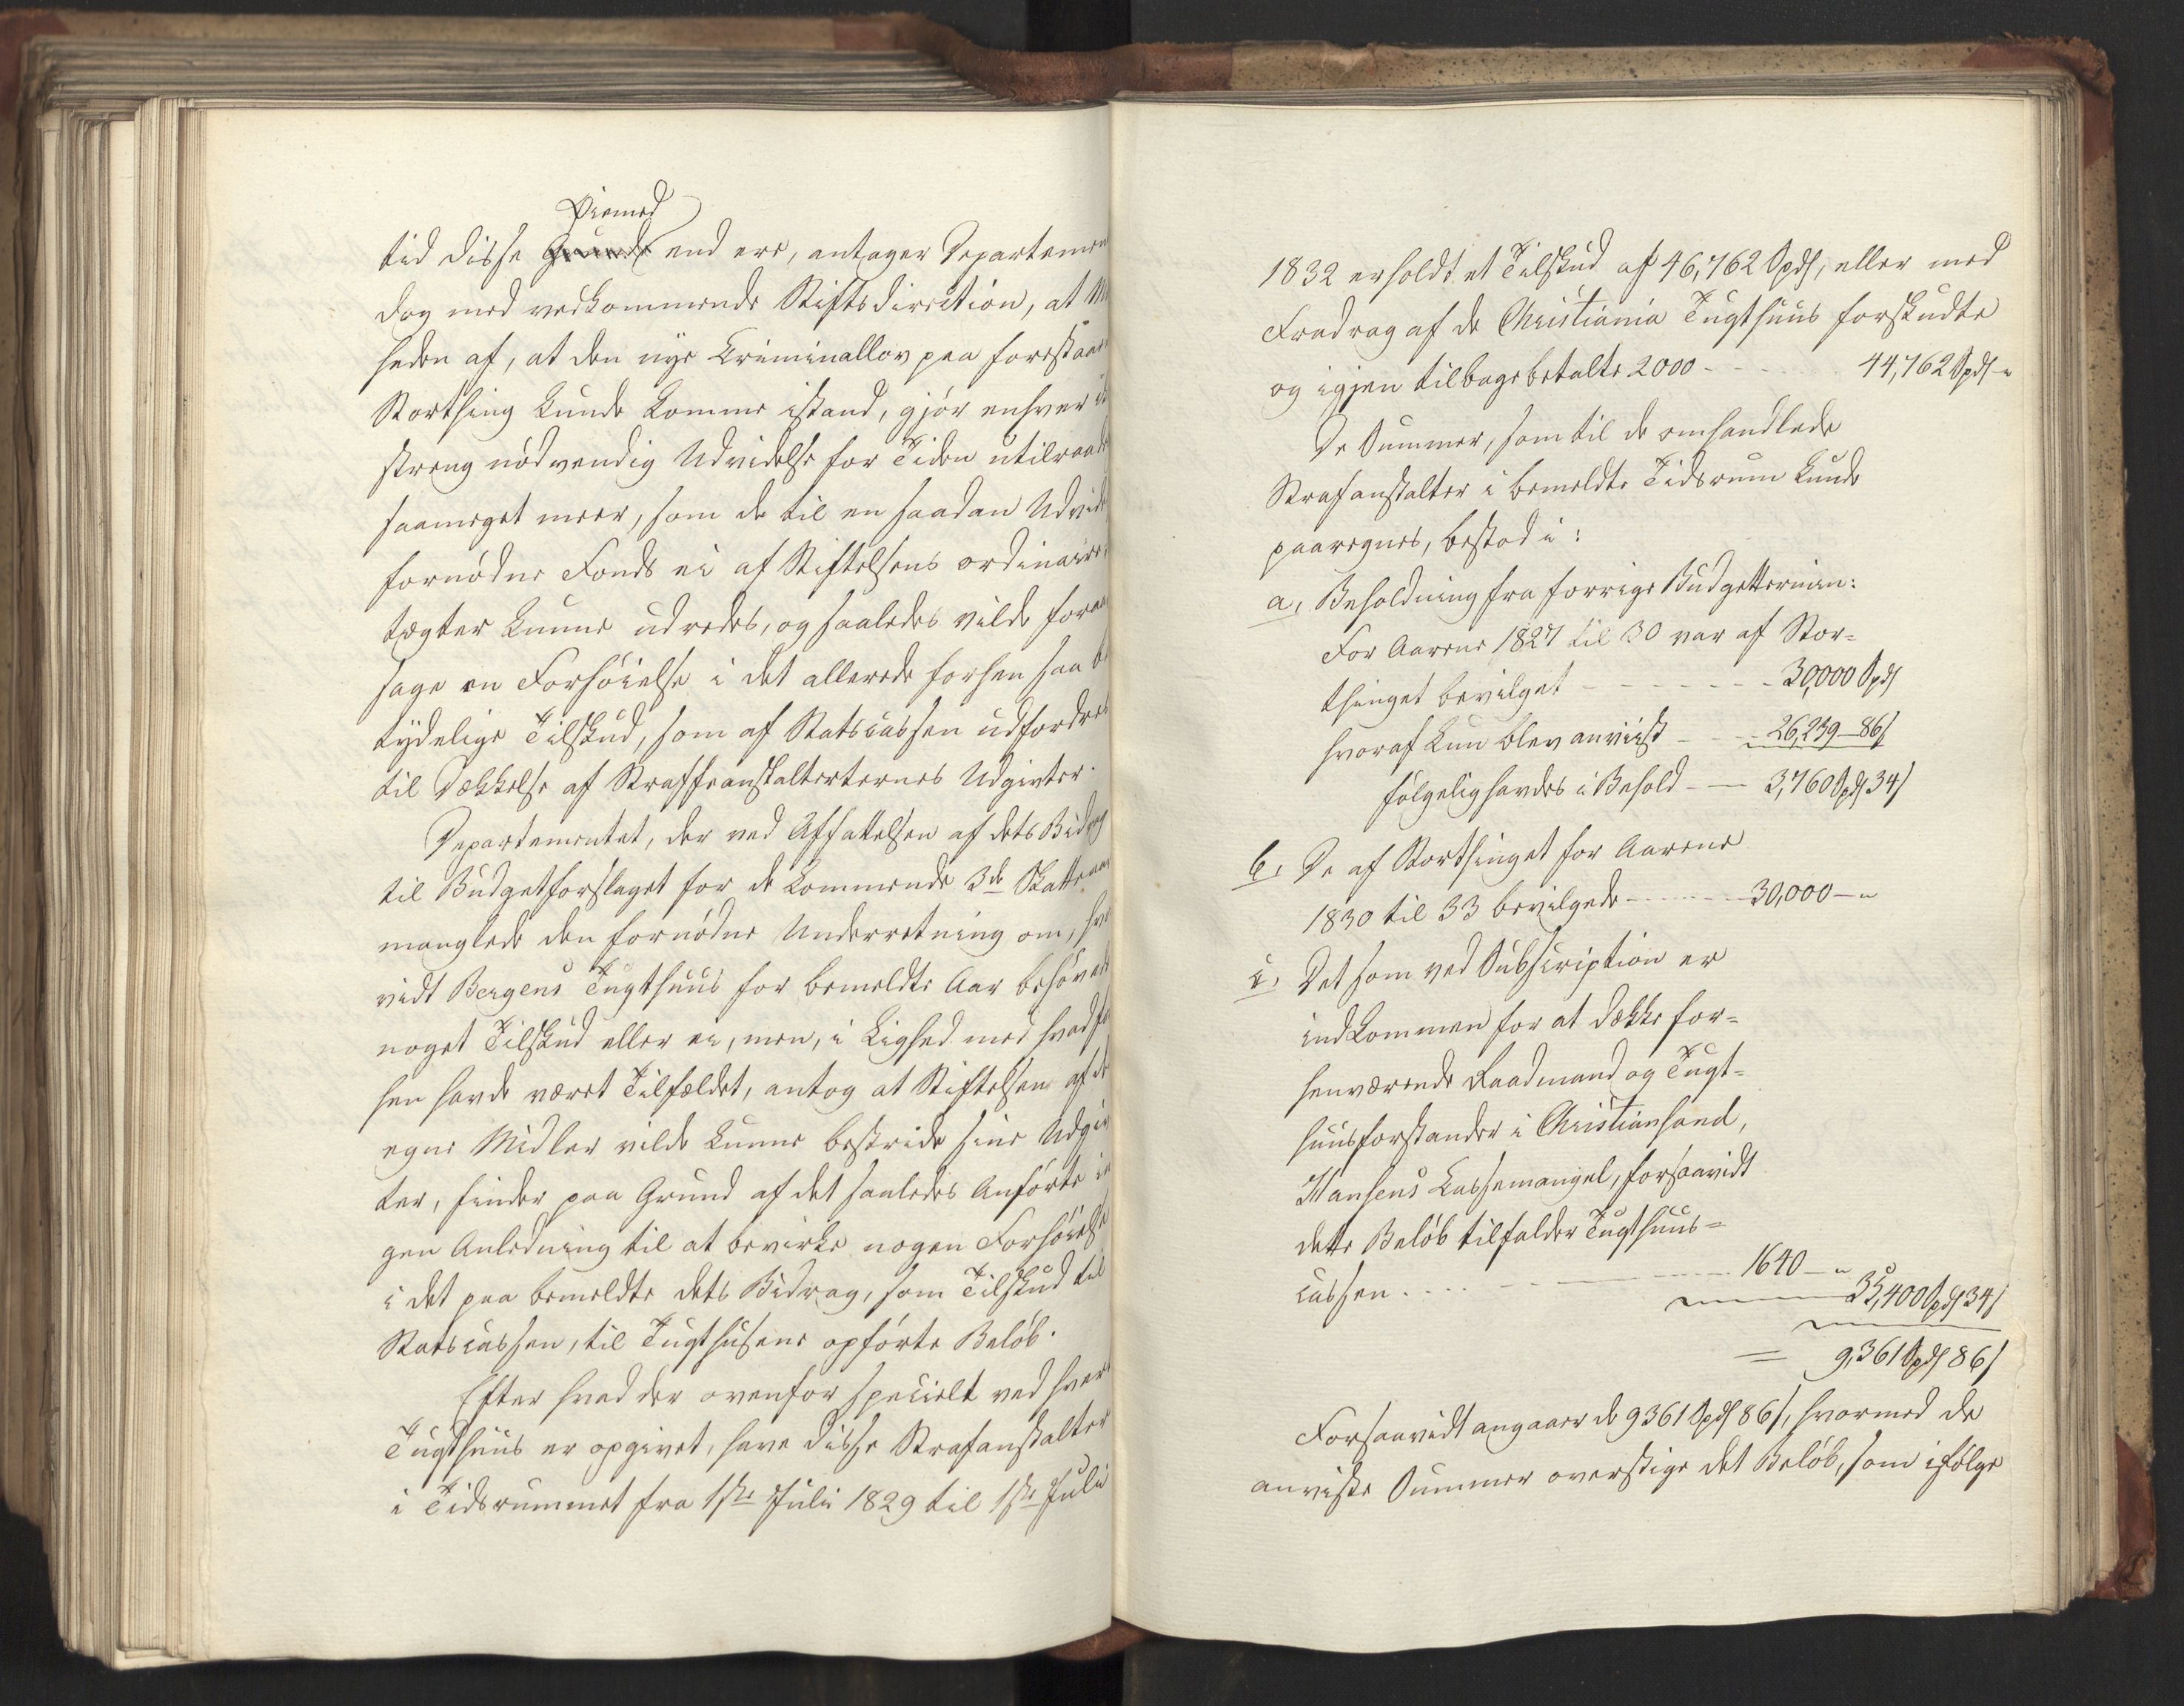 Viemed
tid disse Grunde end ere, antager Departemen
dog med vedkommende Stiftsdirection, at M
heden af, at den nye Criminallov paa forestaae
Storthing kunde komme istand, gjør enhver ik
streng nødvendig Udvidelse for Tiden utilraade
saameget meer, som de til en saadan Udvide
fornødne Fonds ei af Stiftelsens ordinaire
tægter kunne udredes, og saaledes vilde foraar
sage en Forhøielse i det allerede forhen saa be
tydelige Tilskud, som af Statscassen udfordres
til Dækkelse af Straffeanstalterternes Udgivter.
Departementet, der ved Affattelsen af dets Bidrag
til Budgetforslaget for de kommende 3de Skatteaar
manglede den fornødne Underretning om, hvor
vidt Bergens Tugthuus for bemeldte Aar behøvede
noget Tilskud eller ei, men, i Lighed med hvad for
hen havde været Tilfældet, antog at Stiftelsen af de
egne Midler vilde kunne bestride sine Udgiv
ter, finder paa Grund af det saaledes Anførte in
gen Anledning til at bevirke nogen Forhøielse
i det paa bemeldte dets Bidrag, som Tilskud til
Statscassen, til Tugthusene opførte Beløb.
Efter hvad der ovenfor specielt ved hvert
Tugthuus er opgivet, have disse Strafanstalter
i Tidsrummet fra 1ste Julii 1829 til 1ste Julii
1832 erholdt et Tilskud af 46,762 Spd, eller med
Fradrag af de Christiania Tugthuus forskudte
og igjen tilbagebetalte 2000 - - - - 44,762 Spd "
De Summer, som til de omhandlede
Strafanstalter i bemeldte Tidsrum kunde
paaregnes, bestod i:
a, Beholdning fra forrige Budgettermin:
For Aarene 1827 til 30 var af Stor-
thinget bevilget - - - - - - 30,000 Spd
hvoraf kun blev anviist - - - 26,239 - 86 s
følgelig havdes i Behold - - 3,760 Spd 34 s
b, De af Storthinget for Aarene
1830 til 33 bevilgede - - - - 30,000 - "
c, Det som ved Subscription er
indkommen for at dække for-
henværende Raadmand og Tugt-
huusforstander i Christiansand,
Hansens Cassemangel, forsaavidt
dette Beløb tilfalder Tugthuus-
cassen . . . . - - - - 1640 - "
35,400 Spd 34 s
= 9,361 Spd 86 s
Forsaavidt angaaer de 9361 Spd 86 s, hvormed de
anviste Summer overstige det Beløb, som ifølge